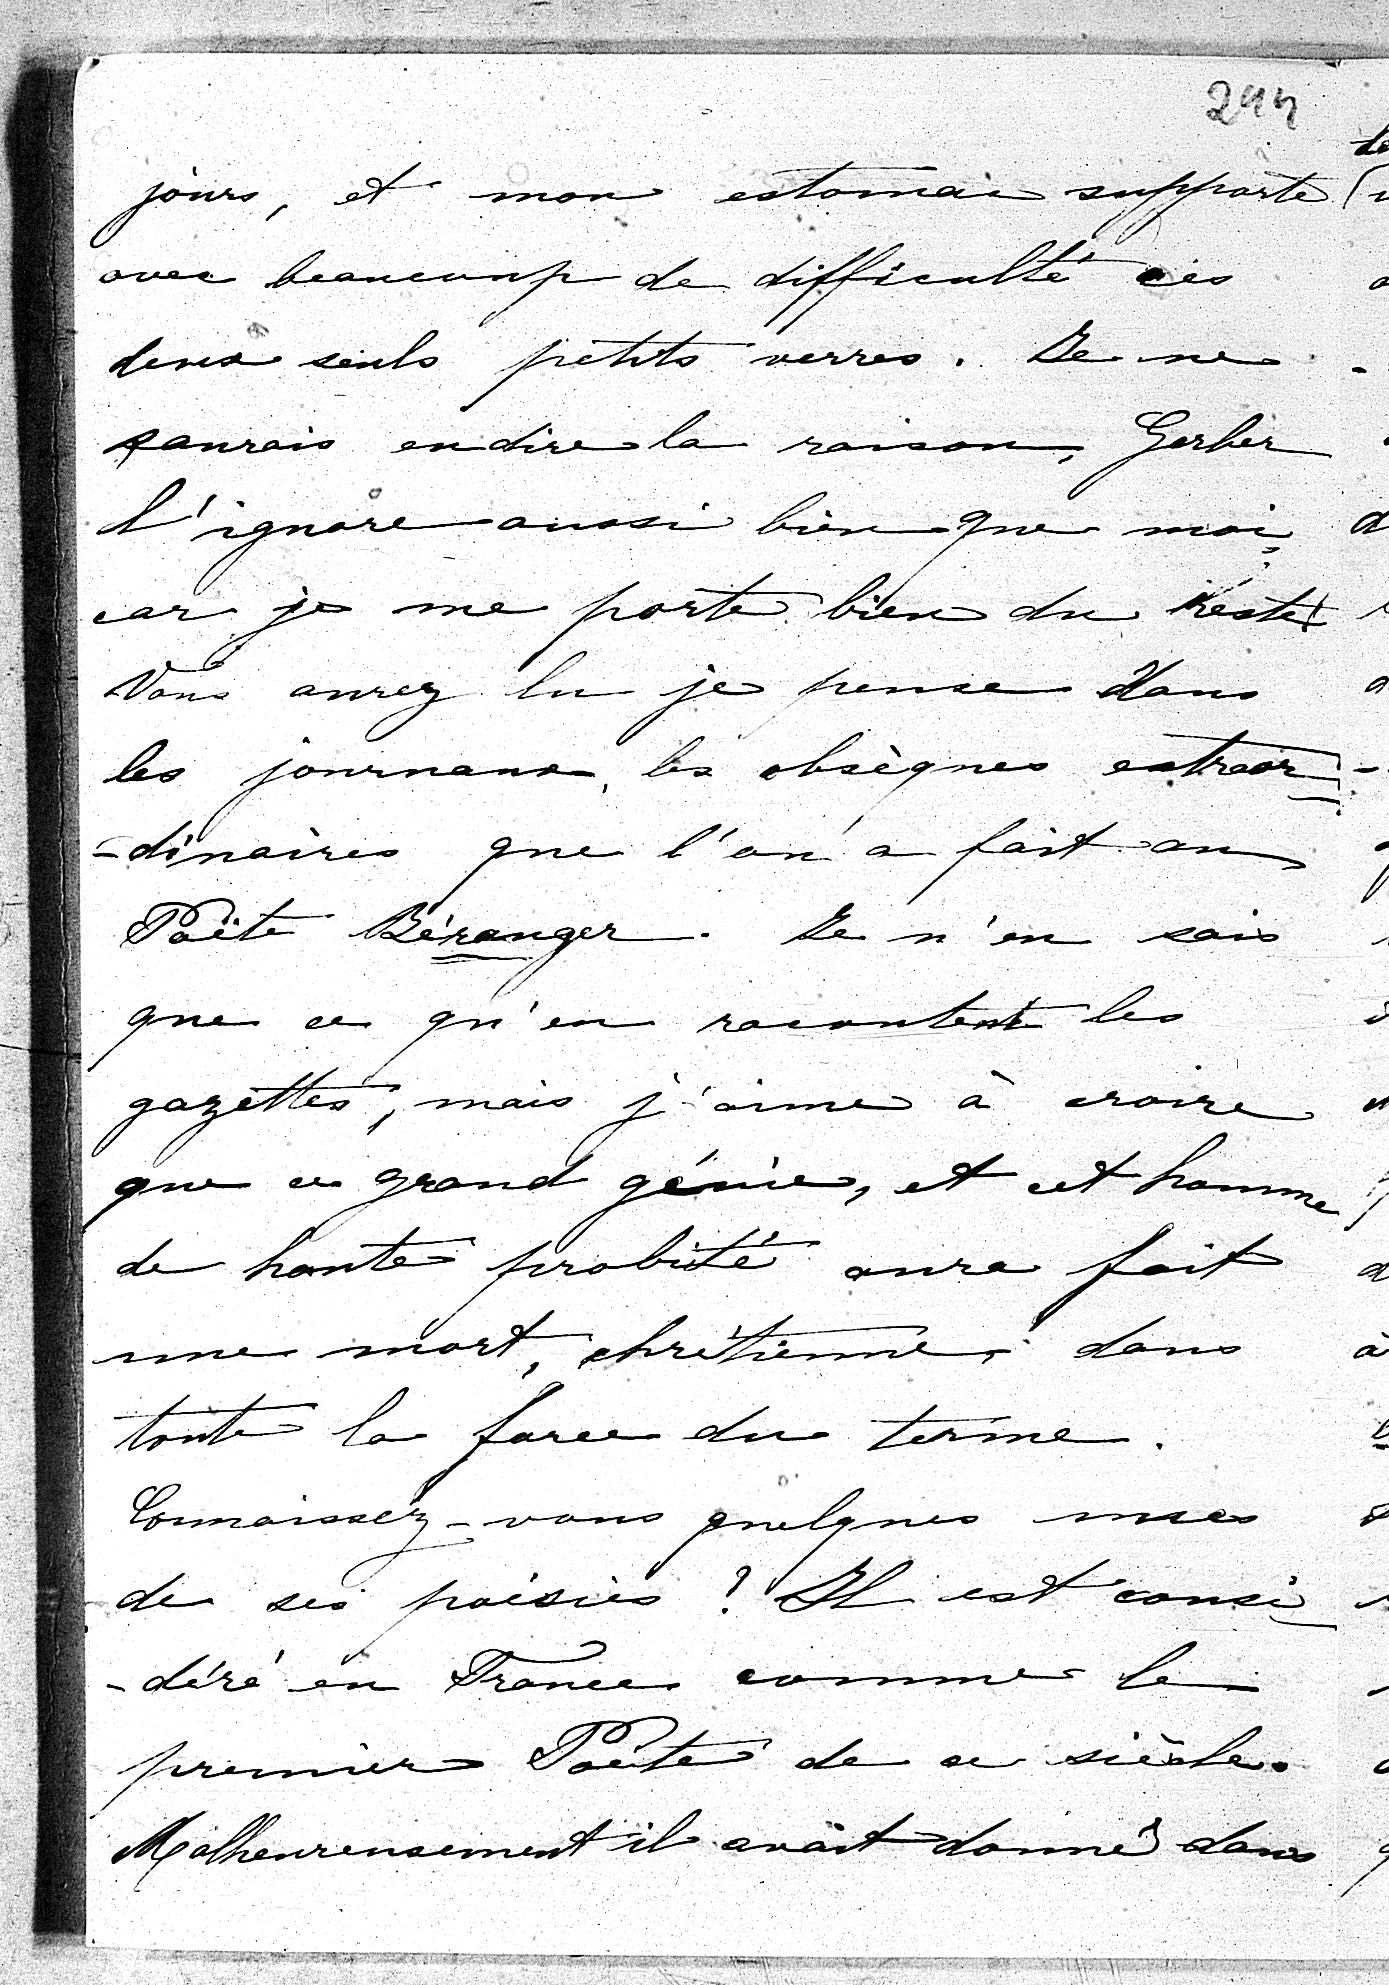 244
jours, et mon estomac supporte
avec beaucoup de difficulté ces
deux seuls petits verres. Je ne
saurais en dire la raison, Gerber
l'ignore aussi bien que moi,
car je me porte bien du reste
Vous aurez lu je pense dans
les journaux, les obsèques extraor-
-dinaires que l'on a fait au
Poëte Béranger. Je n'en sais
que ce qu'en racontent les
gazettes, mais j'aime à croire
que ce grand génie, et cet homme
de haute probité aura fait
une mort, chrétienne, dans
toute la force du terme.
Connaissez-vous quelques unes
de ses poésies ? Il est consi
-déré en France comme le
premier Poëte de ce siècle.
Malheureusement il avait donné dans